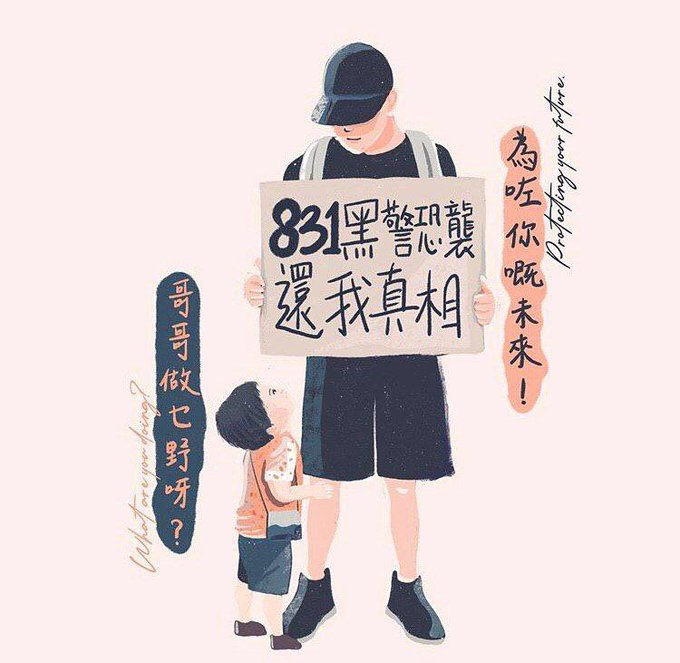 831黑警恐襲
還我真相
哥哥做乜野呀？
What are you doing?
為咗你嘅未來！
Protecting your future.